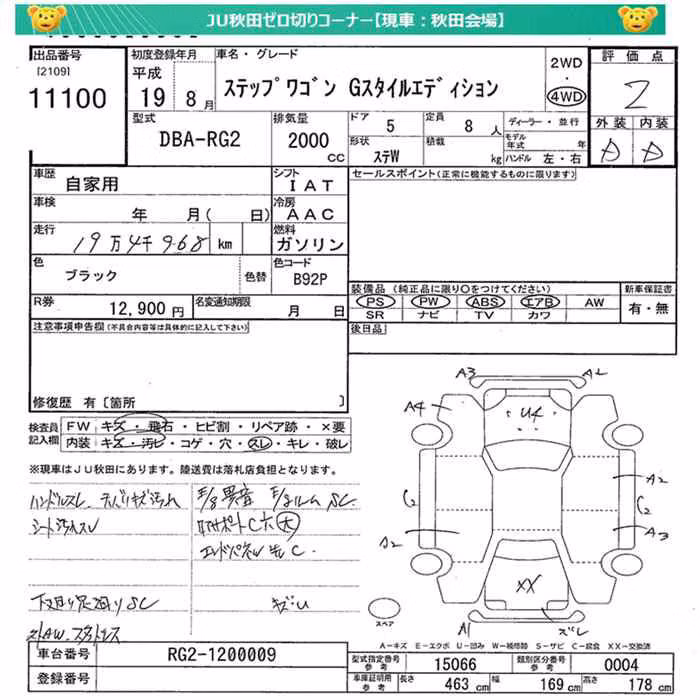 JU秋田ゼロ切りコーナー【現車：秋田会場】
出品番号 初度登録年月 車名・グレード 評価点
[2109] 平成 2WD
11100 19 8月 ステップワゴン Gスタイルエディション ・ 2
4WD
型式 排気量 ドア 5 定員 8 人 ディーラー・並行 外装 内装
DBA-RG2 2000 cc 形状 ステW 積載 kg モデル年式 年 A A
ハンドル 左・右
車歴 自家用 シフト IAT セールスポイント(正常に機能するものに限ります)
車検 年 月( 日) 冷房 AAC
走行 19万4千968 km 燃料 ガソリン
色 ブラック 色替 色コード B92P
装備品 (純正品に限り○をつけてください) 新車保証書
R券 12,900円 名変通知期限 月 日 PS PW ABS エアB AW 有・無
SR ナビ TV カワ
注意事項申告欄(不具合内容等は具体的に記入して下さい) 後日品
修復歴 有〔箇所 〕
検査員記入欄 FW キズ・飛石・ヒビ割・リペア跡・×要
内装 キズ・汚レ・コゲ・穴・スレ・キレ・破レ
※現車はJU秋田にあります。陸送費は落札店負担となります。
A3 A2
A4 U4
A2
C2 C2
A2 A3
XX
A1 ズレ
スペア
ハンドルスレ
シート汚れスレ
下回り足回りSC
キズU
A-キズ E-エクボ U-凹み W-補修跡 S-サビ C-腐食 XX-交換済
車台番号 RG2-1200009
型式指定番号参考 15066 類別区分番号参考 0004
登録番号
車庫証明用参考 長さ 463 cm 幅 169 cm 高さ 178 cm